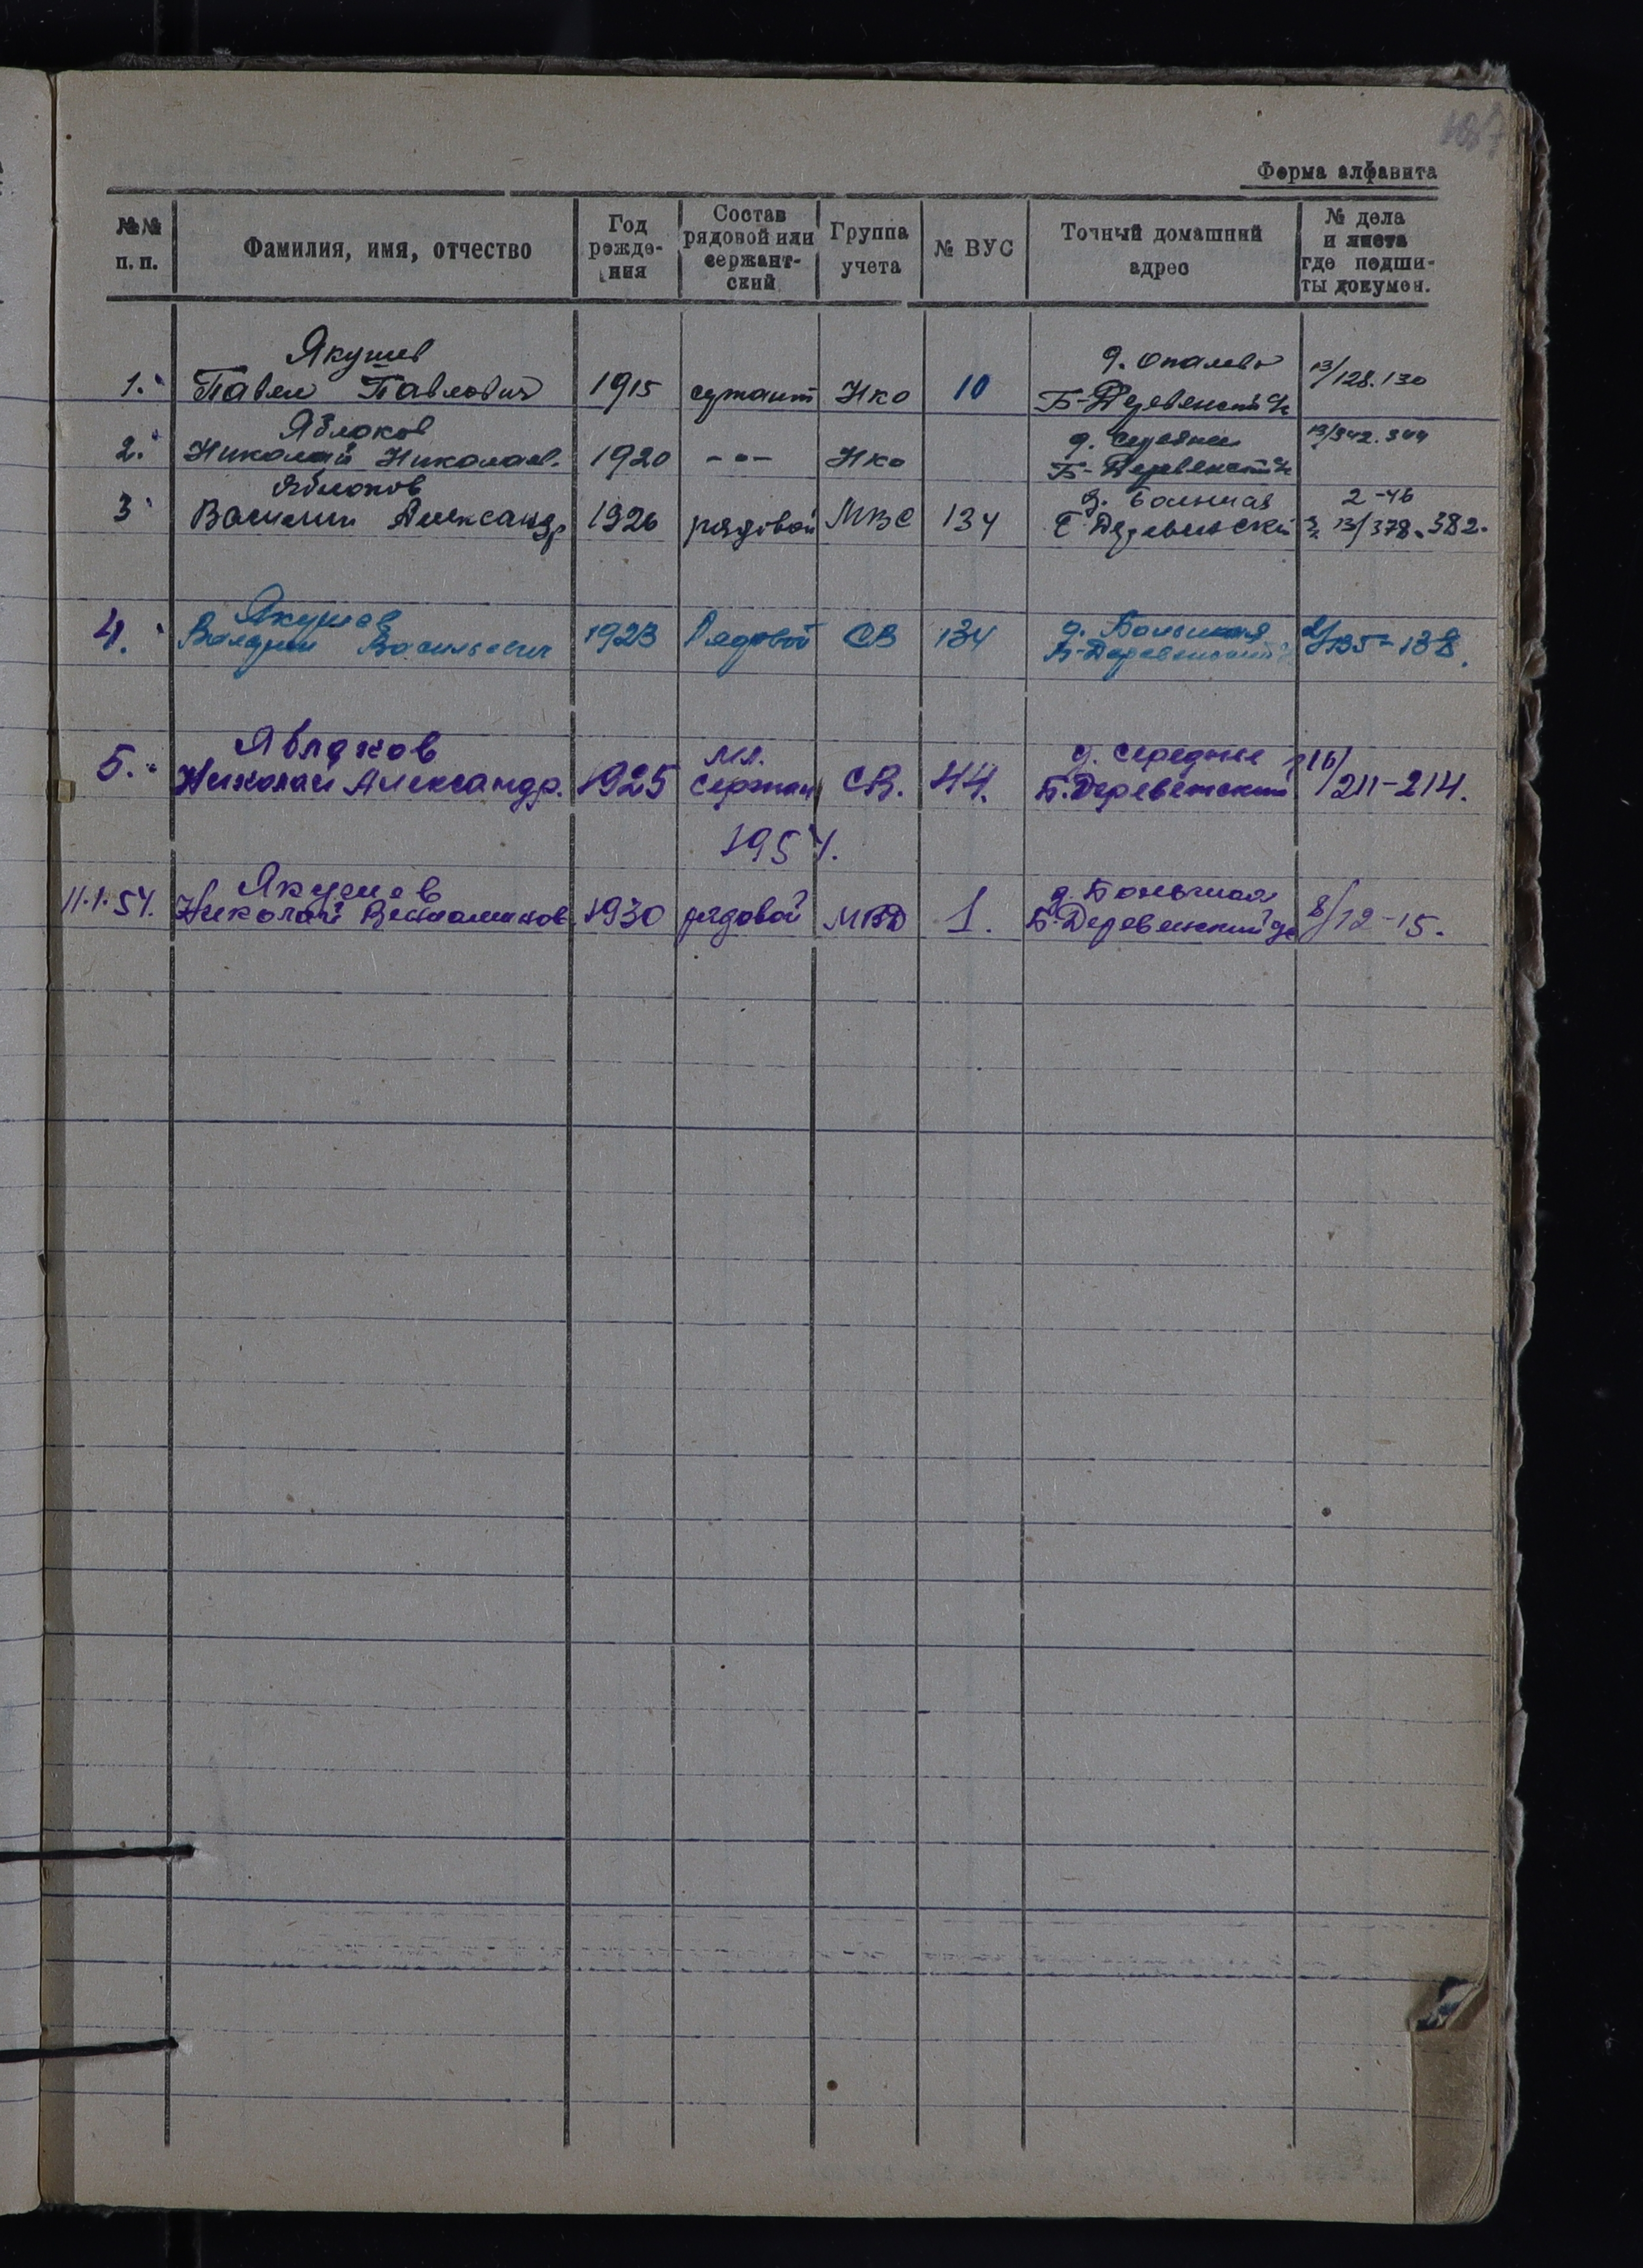 Форма алфавита
№№ п. п. Фамилия, имя, отчество Год рожде-ния Состав рядовой или сержант-ский Группа учета № ВУС Точный домашний адрес № дела и листа где подши-ты докумен.
Якушев д. Опалево
1. Павел Павлович 1915 сержант Нко 10 Б-Деревенский 13/128.130
Яблоков д. Середнее 13/342.344
2. Николай Николаев. 1920 -"- Нко Б-Деревенский
Яблоков д. Большая 2-46
3 Василий Александр 1926 рядовой МВС 134 Б Деревенский 13/378.382.
Якушев д. Большая
4. Валерий Васильевич 1923 Рядовой СВ 134 Б-Деревенский 2/135-138.
Яблоков мл. д. Середнее 16/
5. Николай Александр. 1925 Сержан СВ. 44. Б.Деревенский 211-214.
1954.
Якушев д. Большая
11.1.54. Николай Вениаминов 1930 рядовой МВД 1. Б-Деревенский 8/12-15.